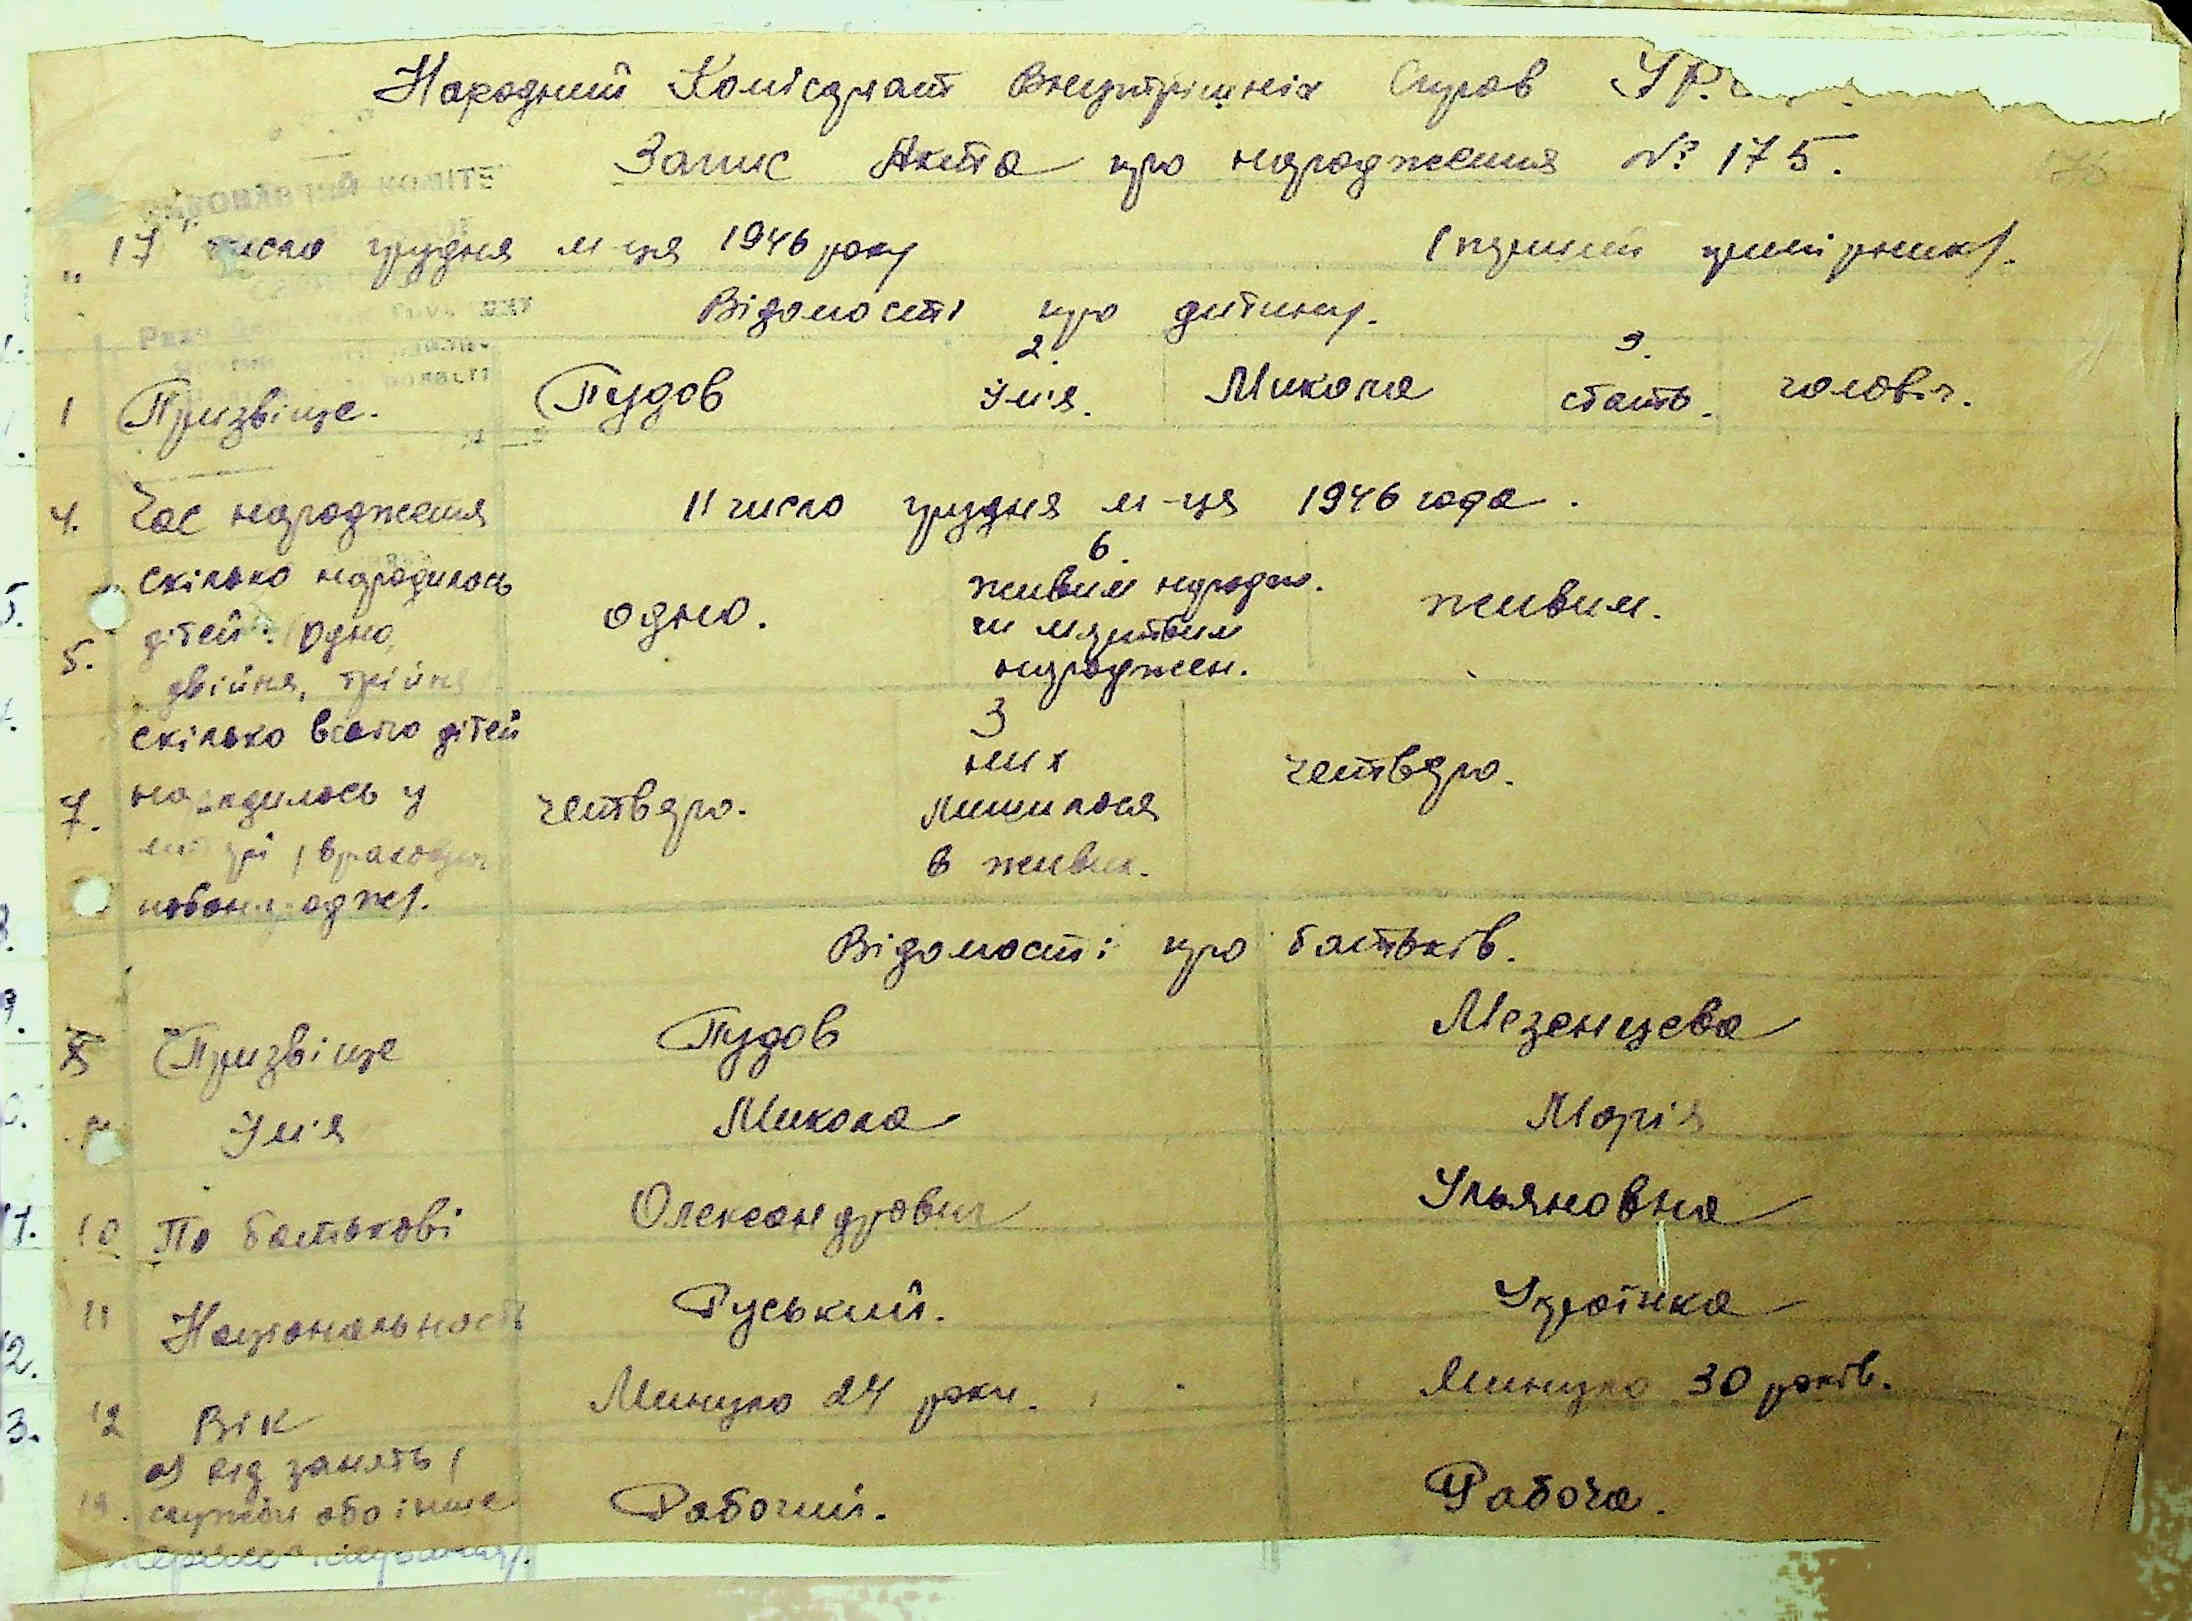 Народний Комісаріат Внутрішніх Справ УР.
Запис Акта про народження № 175.
" 17 " число грудня м-ця 1946 року (перший примірник).
Відомості про дитину.
1 Призвіще. Пудов 2. Ім'я. Микола 3. стать. чоловіч.
4. Час народження 11 число грудня м-ця 1946 года.
5. скілько народилось
дітей: (одно,
двійня, трійня
одно.
6.
живим народж.
чи мертвим
народжен.
живим.
7. скілько всього дітей
народилось у
матері, враховуюч
новонароджен.
четверо.
З
них
лишилося
в живих.
четверо.
Відомості про батьків.
8 Призвіще Пудов Мезенцева
Ім'я Микола Марія
10 По батькові Олександрович Ульяновна
11 Національность Руський. Українка
12 Вік Минуло 24 роки. Минуло 30 років.
13. а) від занять (
служби або інше
джерело існування).
Рабочий. Рабоча.